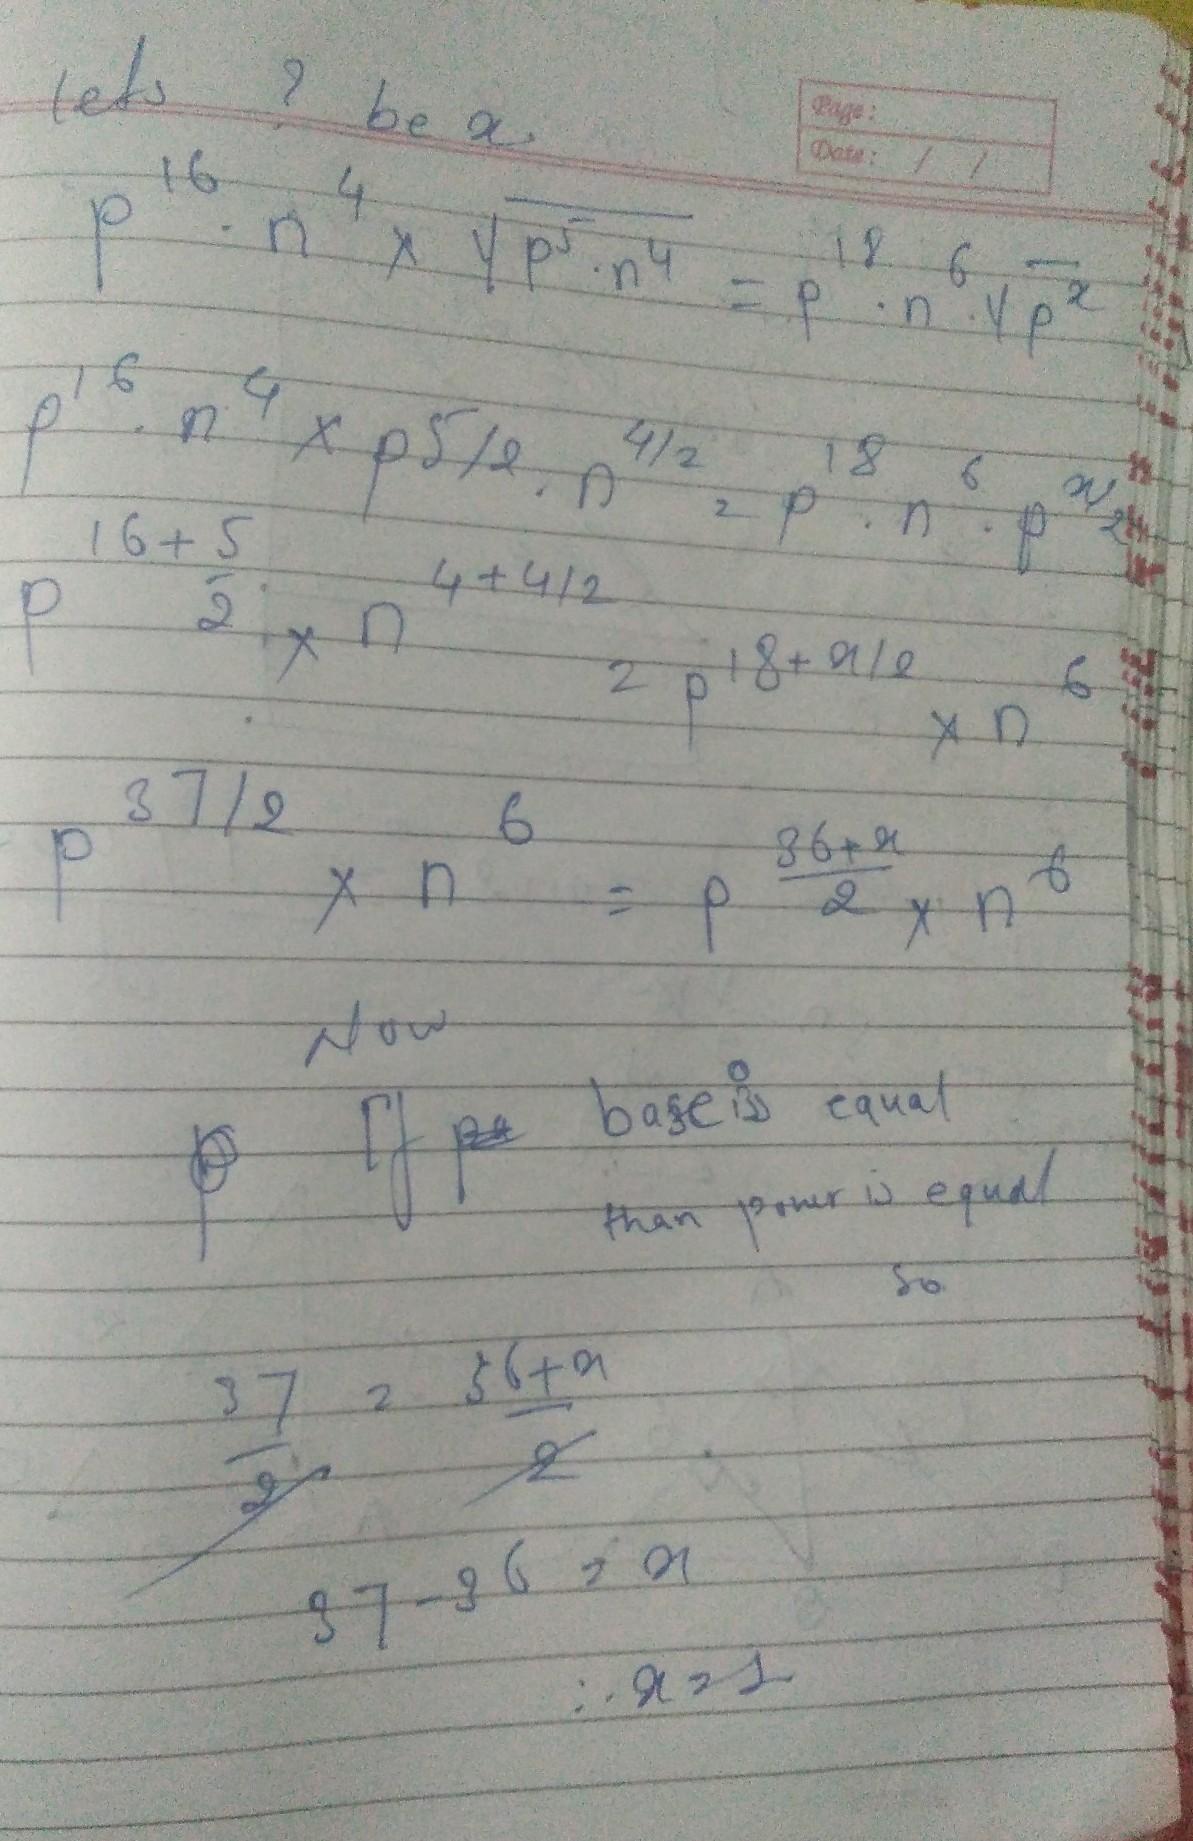 lets ? be x.
Page:
Date: / /
p^16 . n^4 × √(p^5 . n^4) = p^18 . n^6 . √(p^x)
p^16 . n^4 × p^5/2 . n^4/2 = p^18 . n^6 . p^x/2
p^(16+5/2) × n^(4+4/2) = p^(18+x/2) × n^6
p^37/2 × n^6 = p^((36+x)/2) × n^6
Now
If base is equal
than power is equal
so
37/2 = (36+x)/2
37-36 = x
∴ x = 1